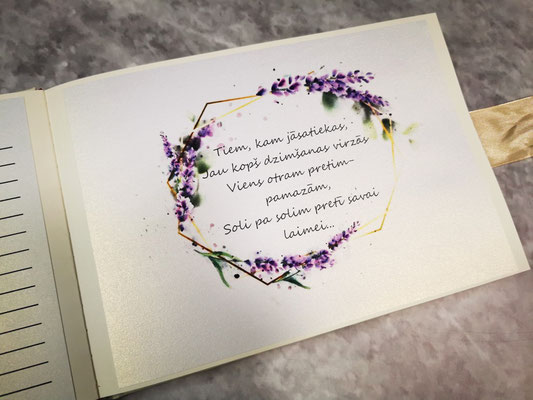 Tiem, kam jāsatiekas,
Jau kopš dzimšanas virzās
Viens otram pretim–
pamazām,
Soli pa solim pretī savai
laimei...